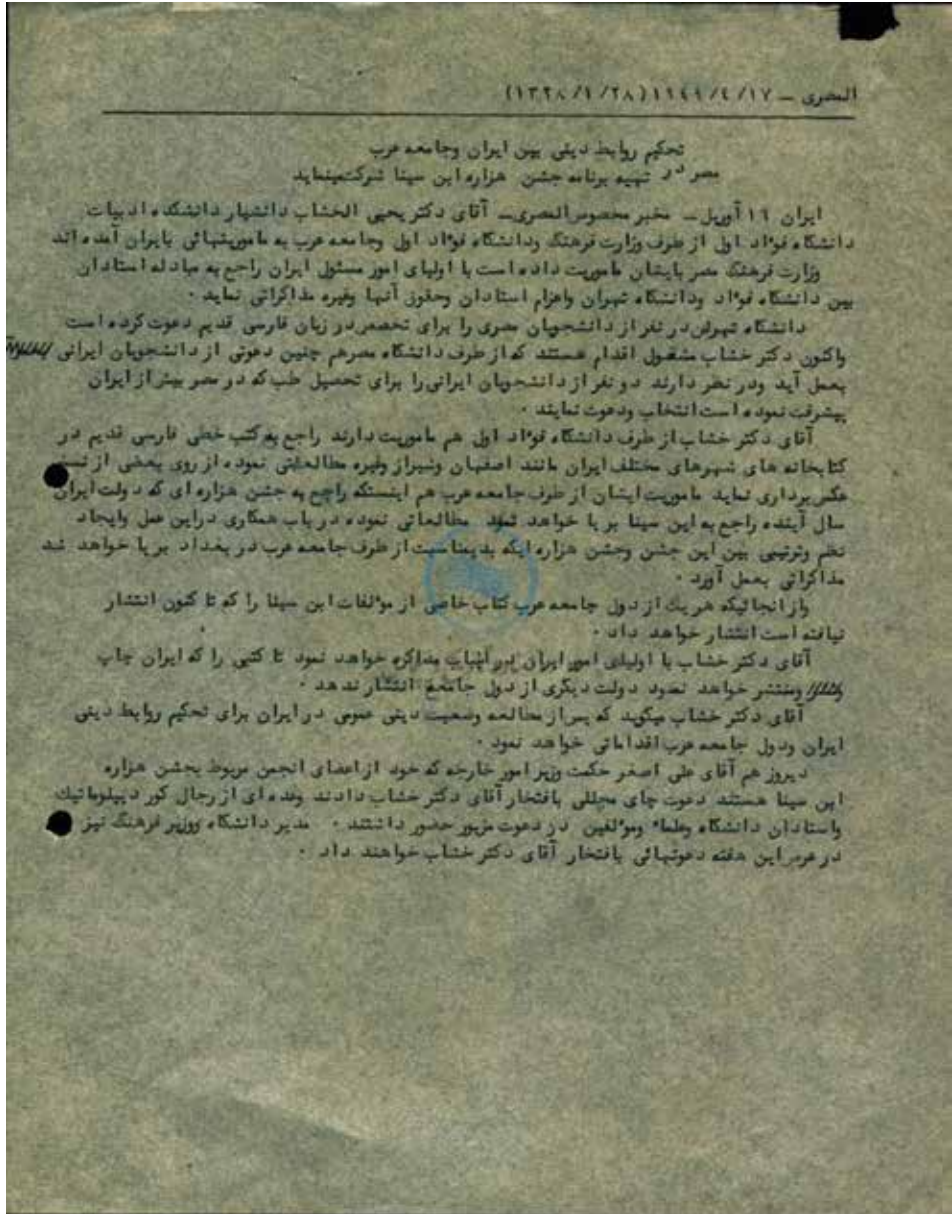 المصری ــ ۱۹۴۹/٤/۱۷ (۱۳۲۸/۱/۲۸)
تحکیم روابط دینی بین ایران وجامعه عرب
مصر در تهیه برنامه جشن هزاره ابن سینا شرکت مینماید
ایران ۱٦ آوریل ــ مخبر مخصوص المصری ــ آقای دکتر یحیی الخشاب دانشیار دانشکده ادبیات
دانشگاه فؤاد اول از طرف وزارت فرهنگ ودانشگاه فؤاد اول وجامعه عرب به ماموریتهائی بایران آمده اند
وزارت فرهنگ مصر بایشان ماموریت داده است با اولیای امور مسئول ایران راجع به مبادله استادان
بین دانشگاه فؤاد ودانشگاه تهران واعزام استادان وحقوق آنها وغیره مذاکراتی نماید ۰
دانشگاه تهران دو نفر از دانشجویان مصری را برای تخصص در زبان فارسی قدیم دعوت کرده است
واکنون دکتر خشاب مشغول اقدام هستند که از طرف دانشگاه مصر هم چنین دعوتی از دانشجویان ایرانی
بعمل آید ودر نظر دارند دو نفر از دانشجویان ایرانی را برای تحصیل طب که در مصر بیش از ایران
پیشرفت نموده است انتخاب ودعوت نمایند ۰
آقای دکتر خشاب از طرف دانشگاه فؤاد اول هم ماموریت دارند راجع به کتب خطی فارسی قدیم در
کتابخانه های شهرهای مختلف ایران مانند اصفهان وشیراز وغیره مطالعاتی نموده از روی بعضی از
عکس برداری نماید ماموریت ایشان از طرف جامعه عرب هم اینستکه راجع به جشن هزاره ای که دولت ایران
سال آینده راجع به ابن سینا بر پا خواهد نمود مطالعاتی نموده در باب همکاری در این عمل وایجاد
نظم وترتیبی بین این جشن وجشن هزاره ایکه بدینمناسبت از طرف جامعه عرب در بغداد بر پا خواهد شد
مذاکراتی بعمل آورد ۰
واز انجائیکه هر یک از دول جامعه عرب کتاب خاصی از مؤلفات ابن سینا را که تا کنون انتشار
نیافته است انتشار خواهد داد ۰
آقای دکتر خشاب با اولیای امور ایران مذاکره خواهد نمود تا کتبی را که ایران چاپ
ومنتشر خواهد نمود دولت دیگری از دول جامعه انتشار ندهد ۰
آقای دکتر خشاب میگوید که پس از مطالعه وضعیت دینی عمومی در ایران برای تحکیم روابط دینی
ایران ودول جامعه عرب اقداماتی خواهد نمود ۰
دیروز هم آقای علی اصغر حکمت وزیر امور خارجه که خود از اعضای انجمن مربوط بجشن هزاره
ابن سینا هستند دعوت چای مجللی بافتخار آقای دکتر خشاب دادند وعده ای از رجال کور دیپلوماتیک
واستادان دانشگاه وعلماء ومؤلفین در دعوت مزبور حضور داشتند ۰ مدیر دانشگاه ووزیر فرهنگ نیز
در عرض این هفته دعوتهائی بافتخار آقای دکتر خشاب خواهند داد ۰